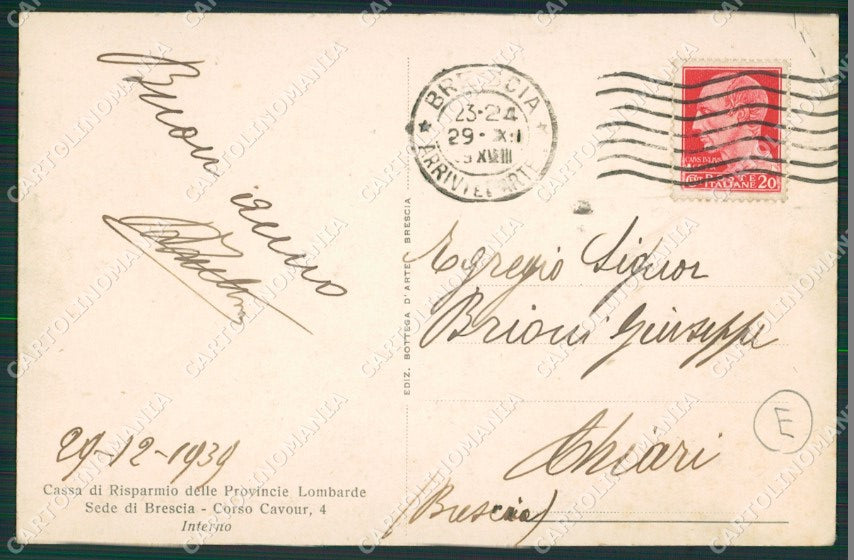 Buon anno
29-12-1939
Cassa di Risparmio delle Provincie Lombarde
Sede di Brescia - Corso Cavour, 4
Interno
EDIZ. BOTTEGA D'ARTE BRESCIA
BRESCIA
23-24
29-XII
XVIII
ARRIVI E PARTENZE
POSTE
ITALIANE 20
Egregio Signor
Brioni Giuseppe
Chiari
(Brescia)
E
CARTOLINOMANIA